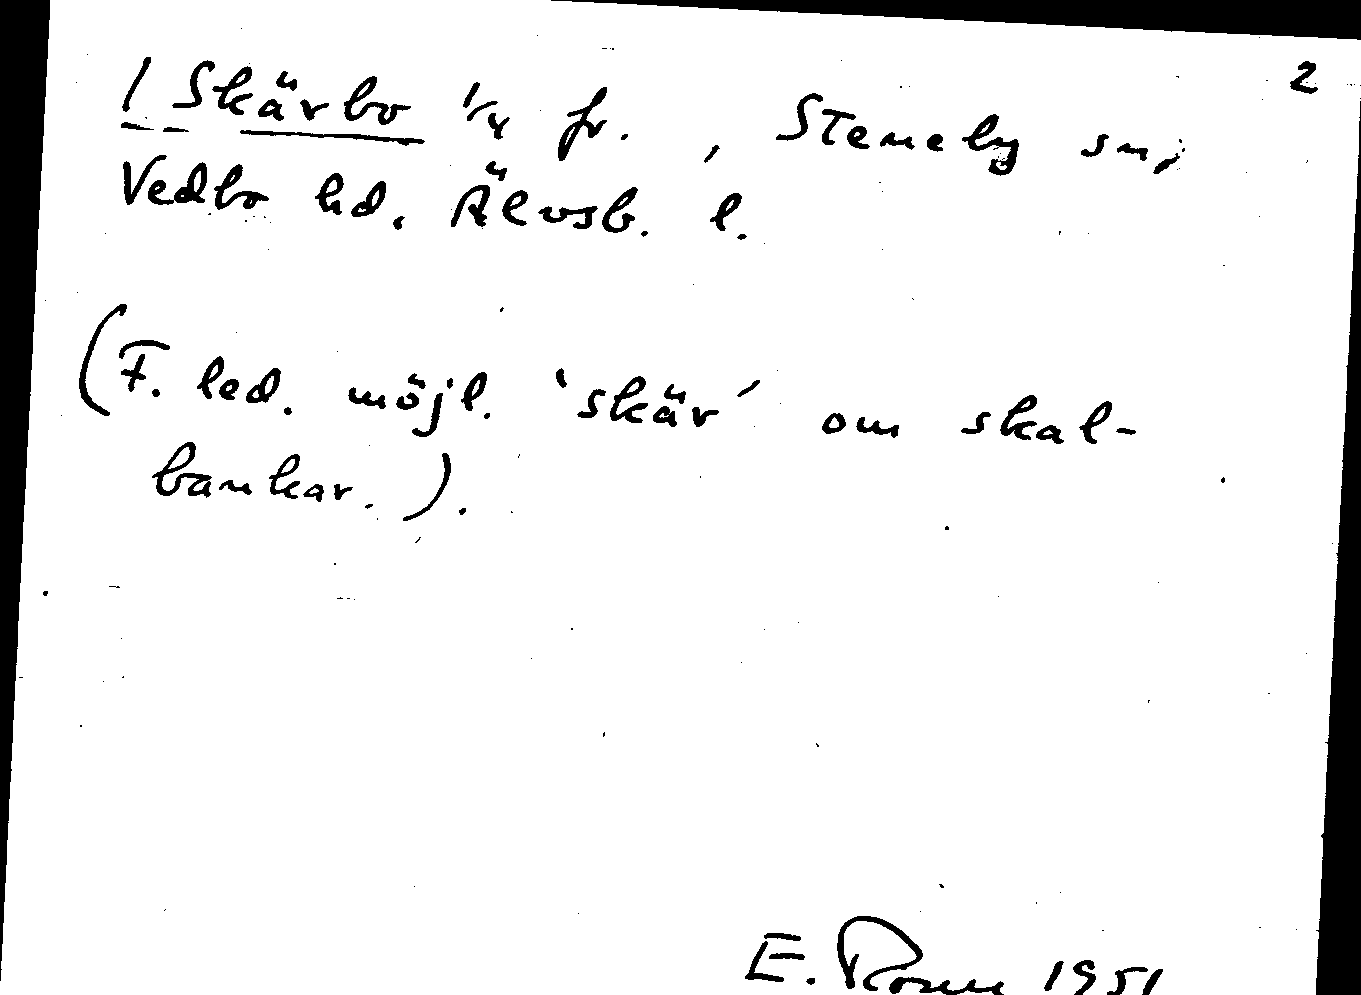 2
1 Skärbo 1/4 fr. , Steneby sn,
Vedbo hd. Älvsb. l.
(F. led. möjl. 'skär' om skal-
bankar.).
E. 1951